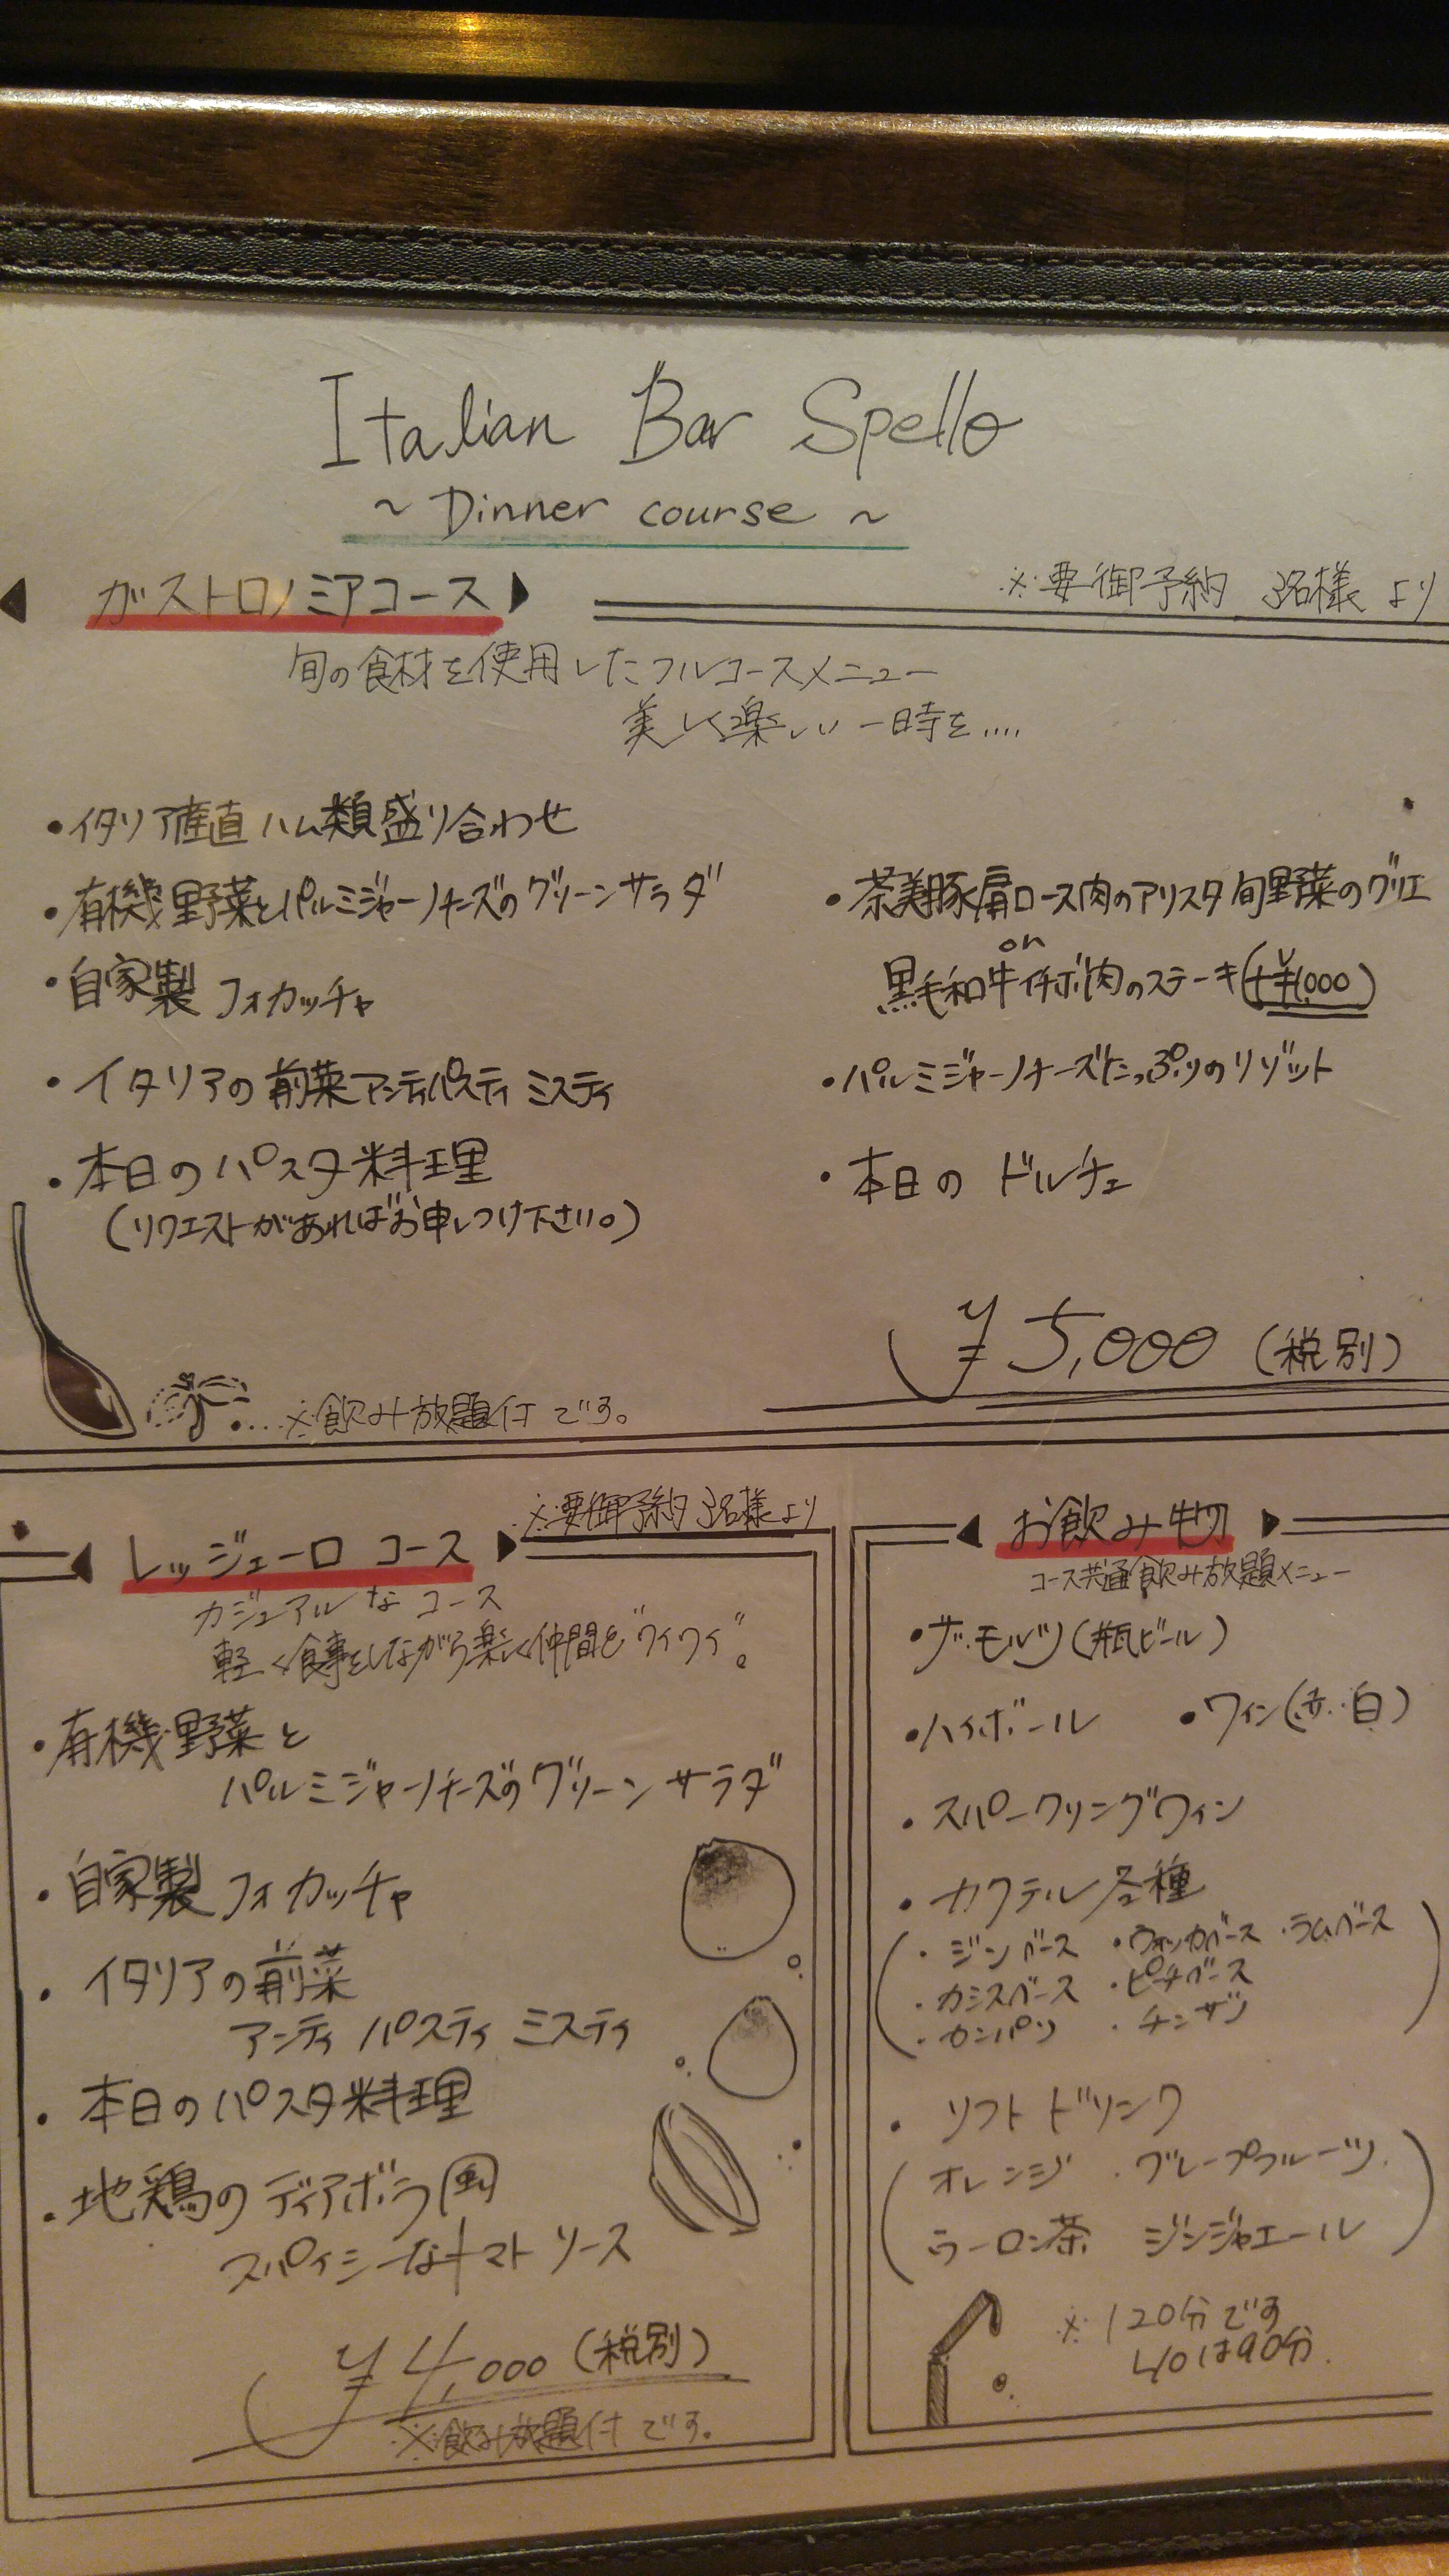 Italian Bar Spello
~ Dinner course ~
ガストロノミアコース
※要御予約 3名様より
旬の食材を使用したフルコースメニュー
美しく楽しい一時を....
・イタリア産直ハム類盛り合わせ
・有機野菜とパルミジャーノチーズのグリーンサラダ
・自家製フォカッチャ
・イタリアの前菜アンティパスティ ミスティ
・本日のパスタ料理
(リクエストがあればお申しつけ下さい。)
・茶美豚肩ロース肉のアリスタ旬野菜のグリエ
or
黒毛和牛イチボ肉のステーキ(+¥1,000)
・パルミジャーノチーズたっぷりのリゾット
・本日の ドルチェ
¥5,000 (税別)
※飲み放題付です。
レッジェーロ コース
※要御予約 3名様より
カジュアルなコース
軽く食事をしながら楽しく仲間と"ワイワイ"。
・有機野菜と
パルミジャーノチーズのグリーンサラダ
・自家製フォカッチャ
・イタリアの前菜
アンティパスティ ミスティ
・本日のパスタ料理
・地鶏のディアボラ風
スパイシーなトマトソース
¥4,000 (税別)
※飲み放題付です。
お飲み物
コース共通飲み放題メニュー
・ザ・モルツ(瓶ビール)
・ハイボール ・ワイン(赤・白)
・スパークリングワイン
・カクテル各種
(・ジンベース ・ウォッカベース ・ラムベース
・カシスベース ・ピーチベース
・カンパリ ・チンザノ)
・ソフトドリンク
(オレンジ ・グレープフルーツ
ウーロン茶 ジンジャエール)
※120分です
L.Oは90分.